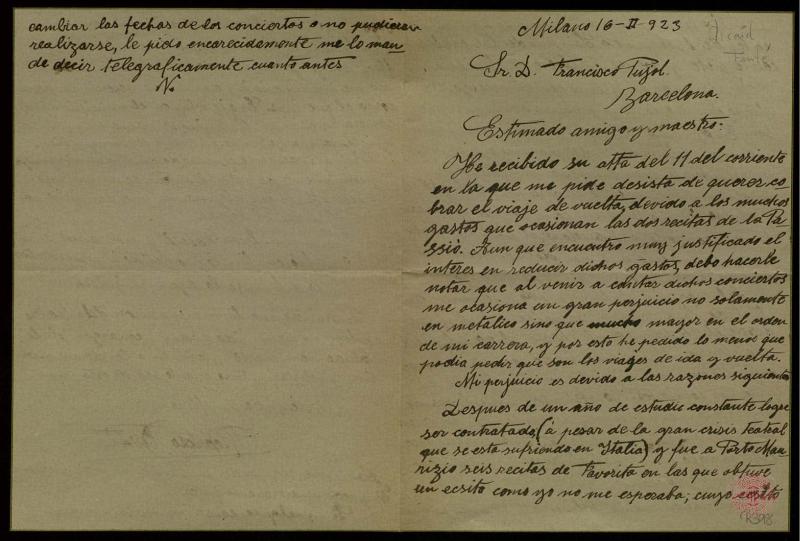 cambiar las fechas de los conciertos o no pudieran
realizarse, le pido encarecidamente me lo man-
de decir telegraficamente cuanto antes
Milano 16-II-923
Sr. D. Francisco Pujol.
Barcelona.
Estimado amigo y maestro:
He recibido su atta del 11 del corriente
en la que me pide desista de querer co-
brar el viaje de vuelta, devido a los muchos
gastos que ocasionan las dos recitas de la Pa-
ssió. Aun que encuentro muy justificado el
interes en reducir dichos gastos, debo hacerle
notar que al venir a cantar dichos conciertos
me ocasiona un gran perjuicio no solamente
en metalico sino que mucho mayor en el orden
de mi carrera, y por esto he pedido lo menos que
podia pedir que son los viages de ida y vuelta.
Mi perjuicio es devido a las razones siguientes
Despues de un año de estudio constante logre
ser contratado, (á pesar de la gran crisis teatral
que se esta sufriendo en Italia) y fue a Porto Mau-
rizio seis recitas de Favorita en las que obtuve
un ecsito como yo no me esperaba; cuyo ecsito
R398